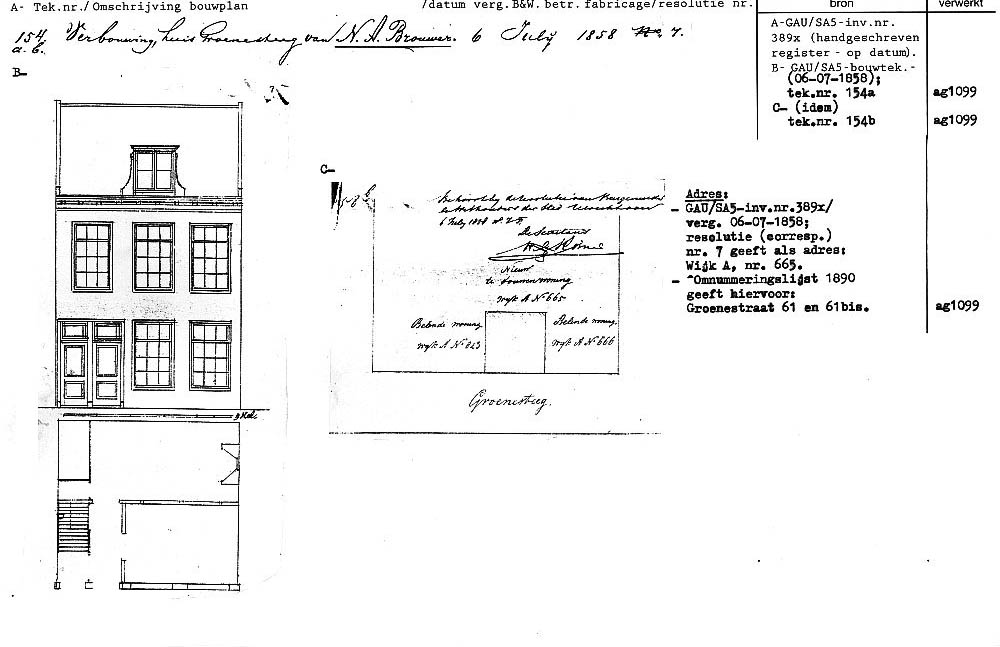 A- Tek.nr./Omschrijving bouwplan /datum verg.B&W.betr.fabricage/resolutie nr. bron verwerkt
154 a. b. Verbouwing huis Groenesteeg van N. A. Brouwer. 6 July 1858 No. 7.
A-GAU/SA5-inv.nr.
389x (handgeschreven
register - op datum).
B- GAU/SA5-bouwtek.-
(06-07-1858);
tek.nr. 154a ag1099
C- (idem)
tek.nr. 154b ag1099
B-
C-
6 July 1858 N. 7
De Secretaris
Nieuw
te bouwen woning
wyk A No 665
Belende woning
wyk A No 623
Belende woning
wyk A No 666
Groenesteeg.
Adres:
- GAU/SA5-inv.nr.389x/
verg. 06-07-1858;
resolutie (corresp.)
nr. 7 geeft als adres:
Wijk A, nr. 665.
- "Omnummeringslijst 1890
geeft hiervoor:
Groenestraat 61 en 61bis. ag1099